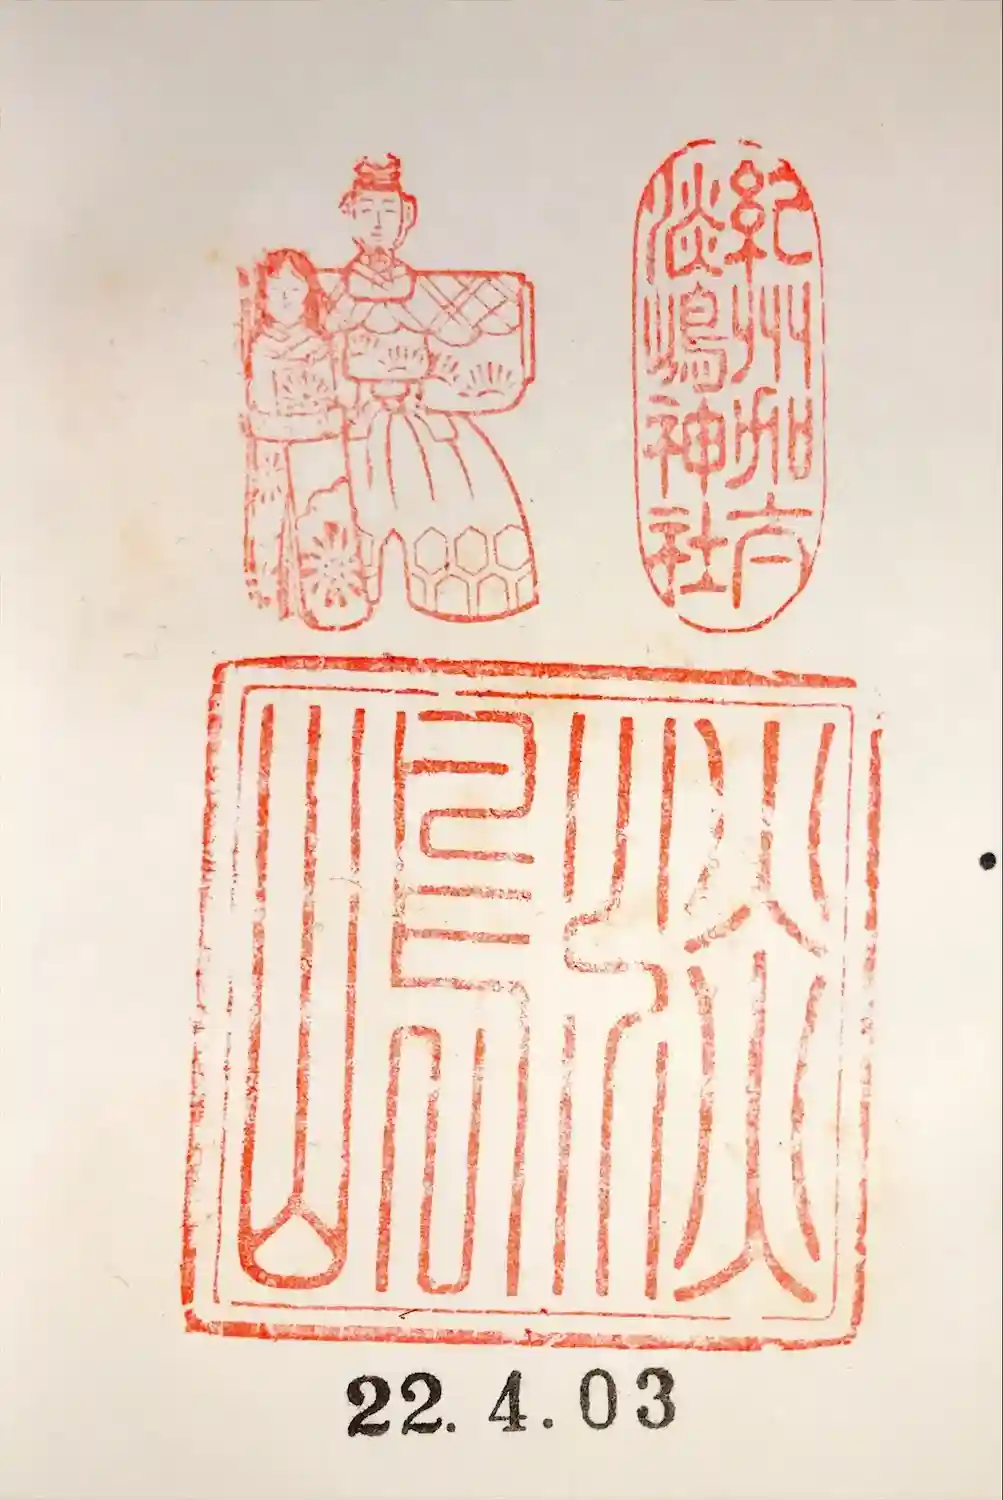 紀州加太
淡嶋神社
淡嶋
22.4.03